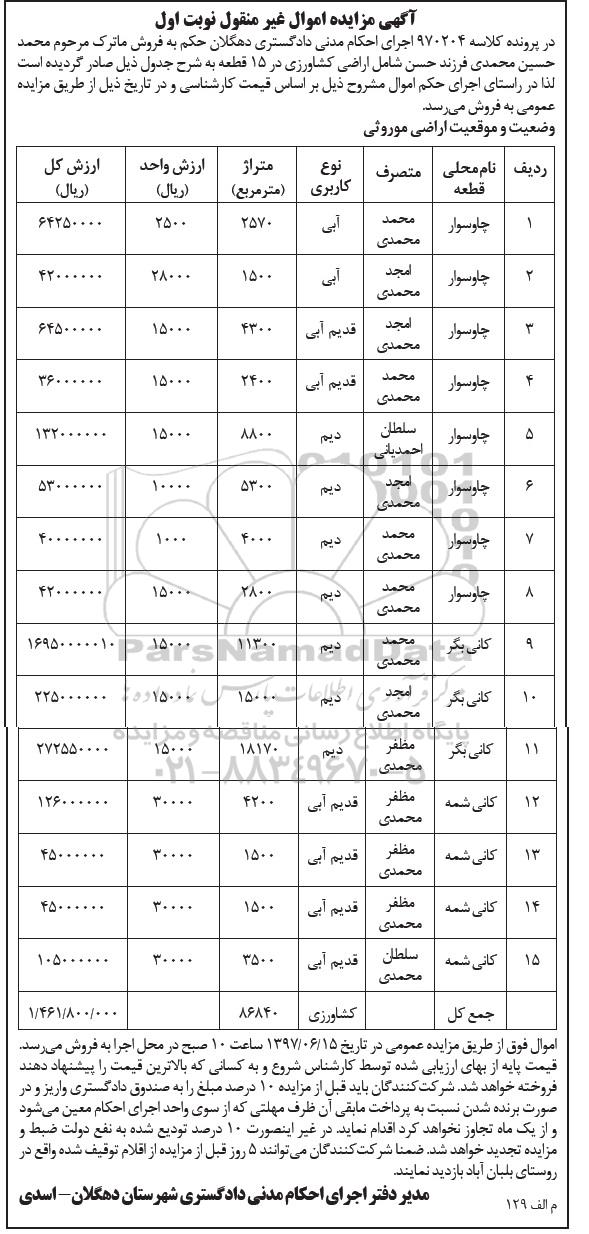 آگهی مزایده اموال غیر منقول نوبت اول
در پرونده کلاسه ۹۷۰۲۰۴ اجرای احکام مدنی دادگستری دهگلان حکم به فروش ماترک مرحوم محمد
حسین محمدی فرزند حسن شامل اراضی کشاورزی در ۱۵ قطعه به شرح جدول ذیل صادر گردیده است
لذا در راستای اجرای حکم اموال مشروح ذیل بر اساس قیمت کارشناسی و در تاریخ ذیل از طریق مزایده
عمومی به فروش می‌رسد.
وضعیت و موقعیت اراضی موروثی
ردیف نام محلی قطعه متصرف نوع کاربری متراژ (مترمربع) ارزش واحد (ریال) ارزش کل (ریال)
۱ چاوسوار محمد محمدی آبی ۲۵۷۰ ۲۵۰۰ ۶۴۲۵۰۰۰۰
۲ چاوسوار امجد محمدی آبی ۱۵۰۰ ۲۸۰۰۰ ۴۲۰۰۰۰۰۰
۳ چاوسوار امجد محمدی قدیم آبی ۴۳۰۰ ۱۵۰۰۰ ۶۴۵۰۰۰۰۰
۴ چاوسوار محمد محمدی قدیم آبی ۲۴۰۰ ۱۵۰۰۰ ۳۶۰۰۰۰۰۰
۵ چاوسوار سلطان احمدیانی دیم ۸۸۰۰ ۱۵۰۰۰ ۱۳۲۰۰۰۰۰۰
۶ چاوسوار امجد محمدی دیم ۵۳۰۰ ۱۰۰۰۰ ۵۳۰۰۰۰۰۰
۷ چاوسوار محمد محمدی دیم ۴۰۰۰ ۱۰۰۰ ۴۰۰۰۰۰۰۰
۸ چاوسوار محمد محمدی دیم ۲۸۰۰ ۱۵۰۰۰ ۴۲۰۰۰۰۰۰
۹ کانی بگر محمد محمدی دیم ۱۱۳۰۰ ۱۵۰۰۰ ۱۶۹۵۰۰۰۰۰۱۰
۱۰ کانی بگر امجد محمدی دیم ۱۵۰۰۰ ۱۵۰۰۰ ۲۲۵۰۰۰۰۰۰
۱۱ کانی بگر مظفر محمدی دیم ۱۸۱۷۰ ۱۵۰۰۰ ۲۷۲۵۵۰۰۰۰
۱۲ کانی شمه مظفر محمدی قدیم آبی ۴۲۰۰ ۳۰۰۰۰ ۱۲۶۰۰۰۰۰۰
۱۳ کانی شمه مظفر محمدی قدیم آبی ۱۵۰۰ ۳۰۰۰۰ ۴۵۰۰۰۰۰۰
۱۴ کانی شمه مظفر محمدی قدیم آبی ۱۵۰۰ ۳۰۰۰۰ ۴۵۰۰۰۰۰۰
۱۵ کانی شمه سلطان محمدی قدیم آبی ۳۵۰۰ ۳۰۰۰۰ ۱۰۵۰۰۰۰۰۰
جمع کل کشاورزی ۸۶۸۴۰ ۱/۴۶۱/۸۰۰/۰۰۰
اموال فوق از طریق مزایده عمومی در تاریخ ۱۳۹۷/۰۶/۱۵ ساعت ۱۰ صبح در محل اجرا به فروش می‌رسد.
قیمت پایه از بهای ارزیابی شده توسط کارشناس شروع و به کسانی که بالاترین قیمت را پیشنهاد دهند
فروخته خواهد شد. شرکت‌کنندگان باید قبل از مزایده ۱۰ درصد مبلغ را به صندوق دادگستری واریز و در
صورت برنده شدن نسبت به پرداخت مابقی آن ظرف مهلتی که از سوی واحد اجرای احکام معین می‌شود
و از یک ماه تجاوز نخواهد کرد اقدام نماید. در غیر اینصورت ۱۰ درصد تودیع شده به نفع دولت ضبط و
مزایده تجدید خواهد شد. ضمنا شرکت‌کنندگان می‌توانند ۵ روز قبل از مزایده از اقلام توقیف شده واقع در
روستای بلبان آباد بازدید نمایند.
مدیر دفتر اجرای احکام مدنی دادگستری شهرستان دهگلان – اسدی
م الف ۱۲۹
ParsNamadData
پایگاه اطلاع رسانی مناقصه و مزایده
۰۲۱-۸۸۳۴۹۶۷۰-۵